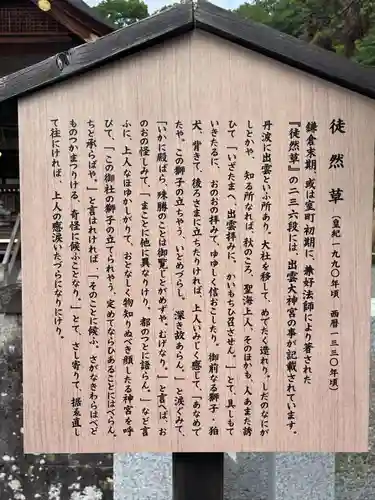 徒然草(皇紀一九九〇年頃 西暦一三三〇年頃)
鎌倉末期、或は室町初期に、兼好法師により著された
『徒然草』の二三六段には、出雲大神宮の事が記載されています。
丹波に出雲といふ所あり。大社を移して、めでたく造れり。しだのなにが
しとかや、知る所なれば、秋のころ、聖海上人、そのほかも、人あまた誘
ひて、「いざたまへ、出雲拝みに。かいもちひ召させん。」とて、具しもて
いきたるに、おのおの拝みて、ゆゆしく信おこしたり。御前なる獅子・狛
犬、背きて、後ろさまに立ちたりければ、上人いみじく感じて、「あなめで
たや。この獅子の立ちやう、いとめづらし。深き故あらん。」と涙ぐみて、
「いかに殿ばら、殊勝のことは御覧じとがめずや。むげなり。」と言へば、お
のおの怪しみて、「まことに他に異なりけり。都のつとに語らん。」など言
ふに、上人なほゆかしがりて、おとなしく物知りぬべき顔したる神官を呼
びて、「この御社の獅子の立てられやう、定めてならひあることにはべらん。
ちと承らばや。」と言はれければ、「そのことに候ふ。さがなきわらはべど
ものつかまつりける、奇怪に候ふことなり。」とて、さし寄りて、据ゑ直し
て往にければ、上人の感涙いたづらになりにけり。